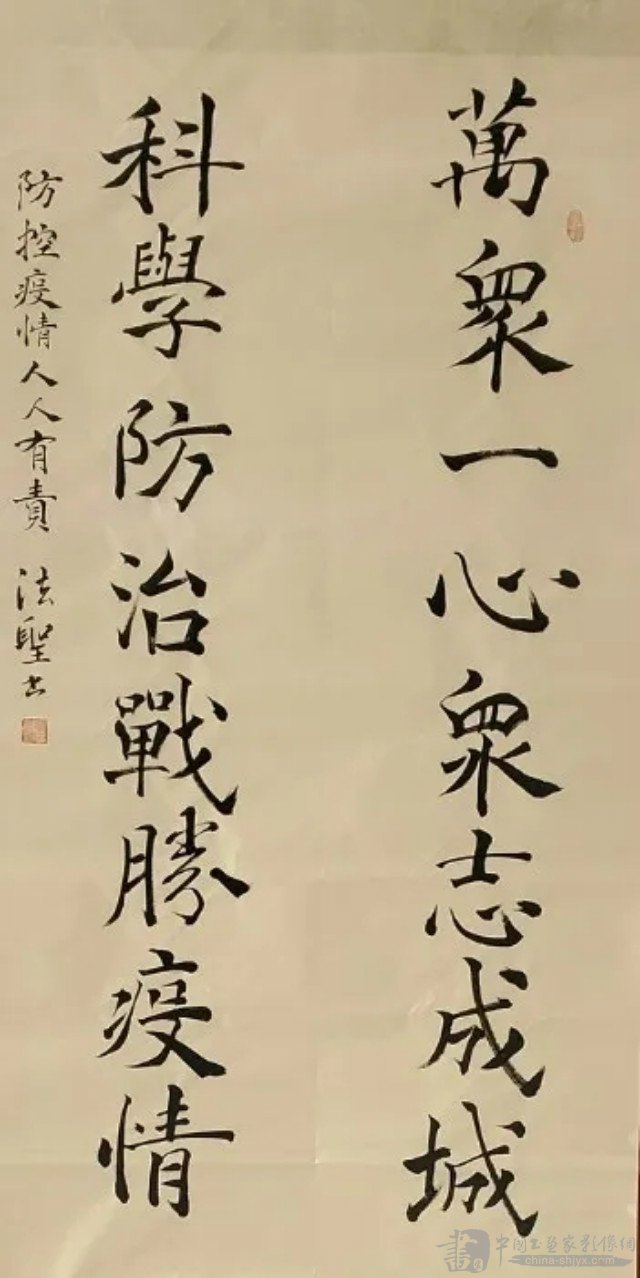 萬衆一心衆志成城
科學防治戰勝疫情
防控疫情人人有責 法聖书
中国书画家影像網
china-shjyx.com